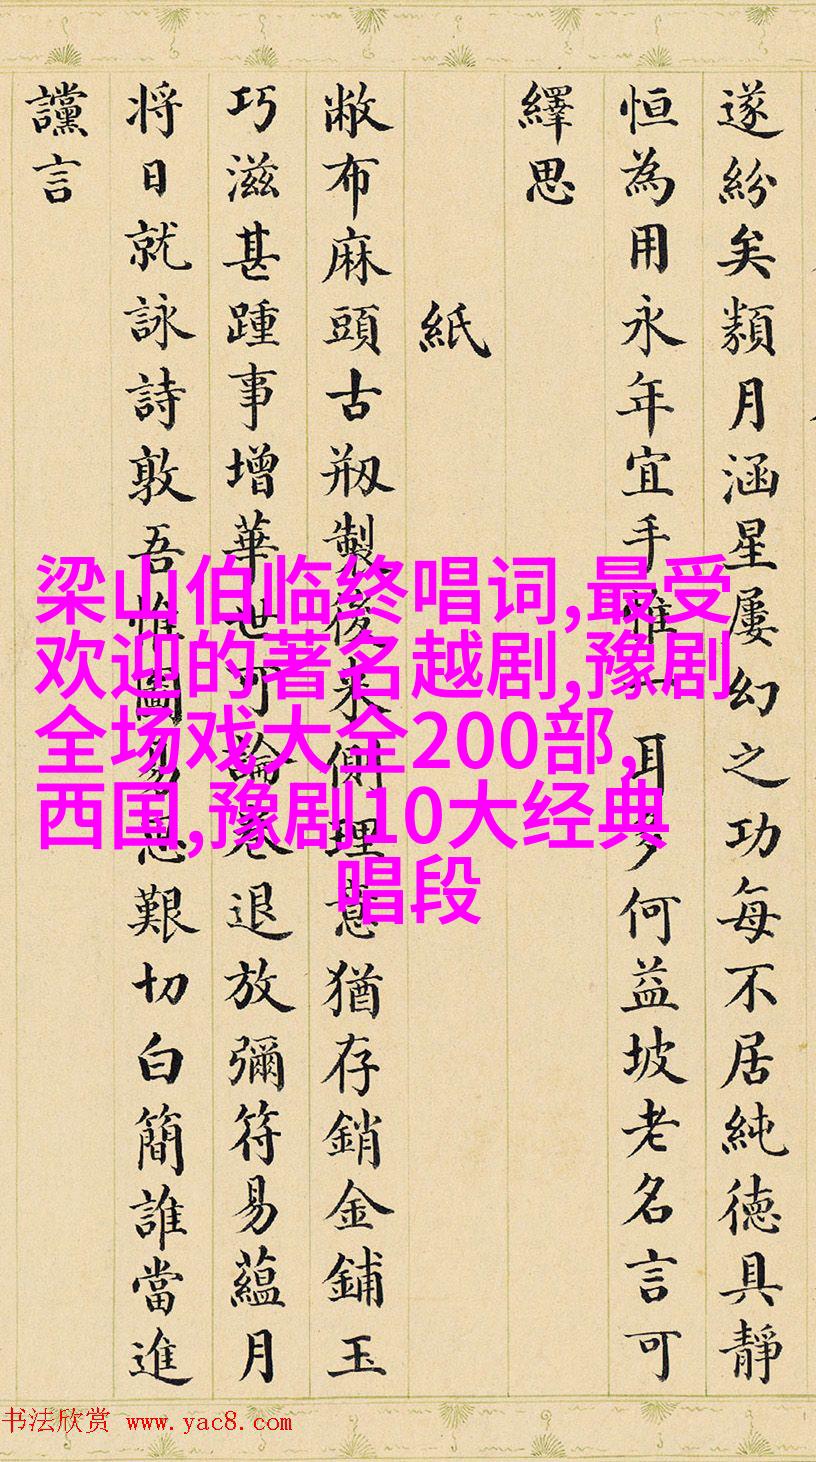 遂紛矣類月涵星屢幻之功每不居純德具靜
恒為用永年宜手惟一耳多何益坡老名言可
繹思
紙
敝布麻頭古剏製後來側理意猶存銷金鋪玉
巧滋甚踵事增華世可論卷退放彌符易蘊月
将日就詠詩敦吾惟圖易思艱切白簡誰當進
讜言
梁山伯临终唱词,最受
欢迎的著名越剧,豫剧
全场戏大全200部,
西国,豫剧10大经典
唱段
书法欣赏 www.yac8.com